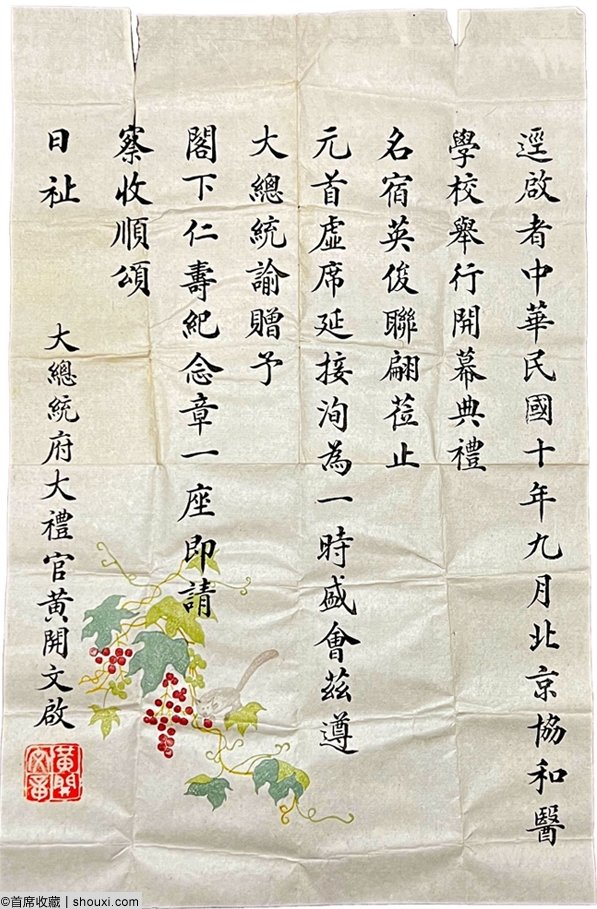 逕啟者中華民國十年九月北京協和醫
學校舉行開幕典禮
名宿英俊聯翩蒞止
元首虛席延接洵為一時盛會茲遵
大總統諭贈予
閣下仁壽紀念章一座即請
察收順頌
日祉
大總統府大禮官黃開文啟
黃開
文章
©首席收藏 | shouxi.com